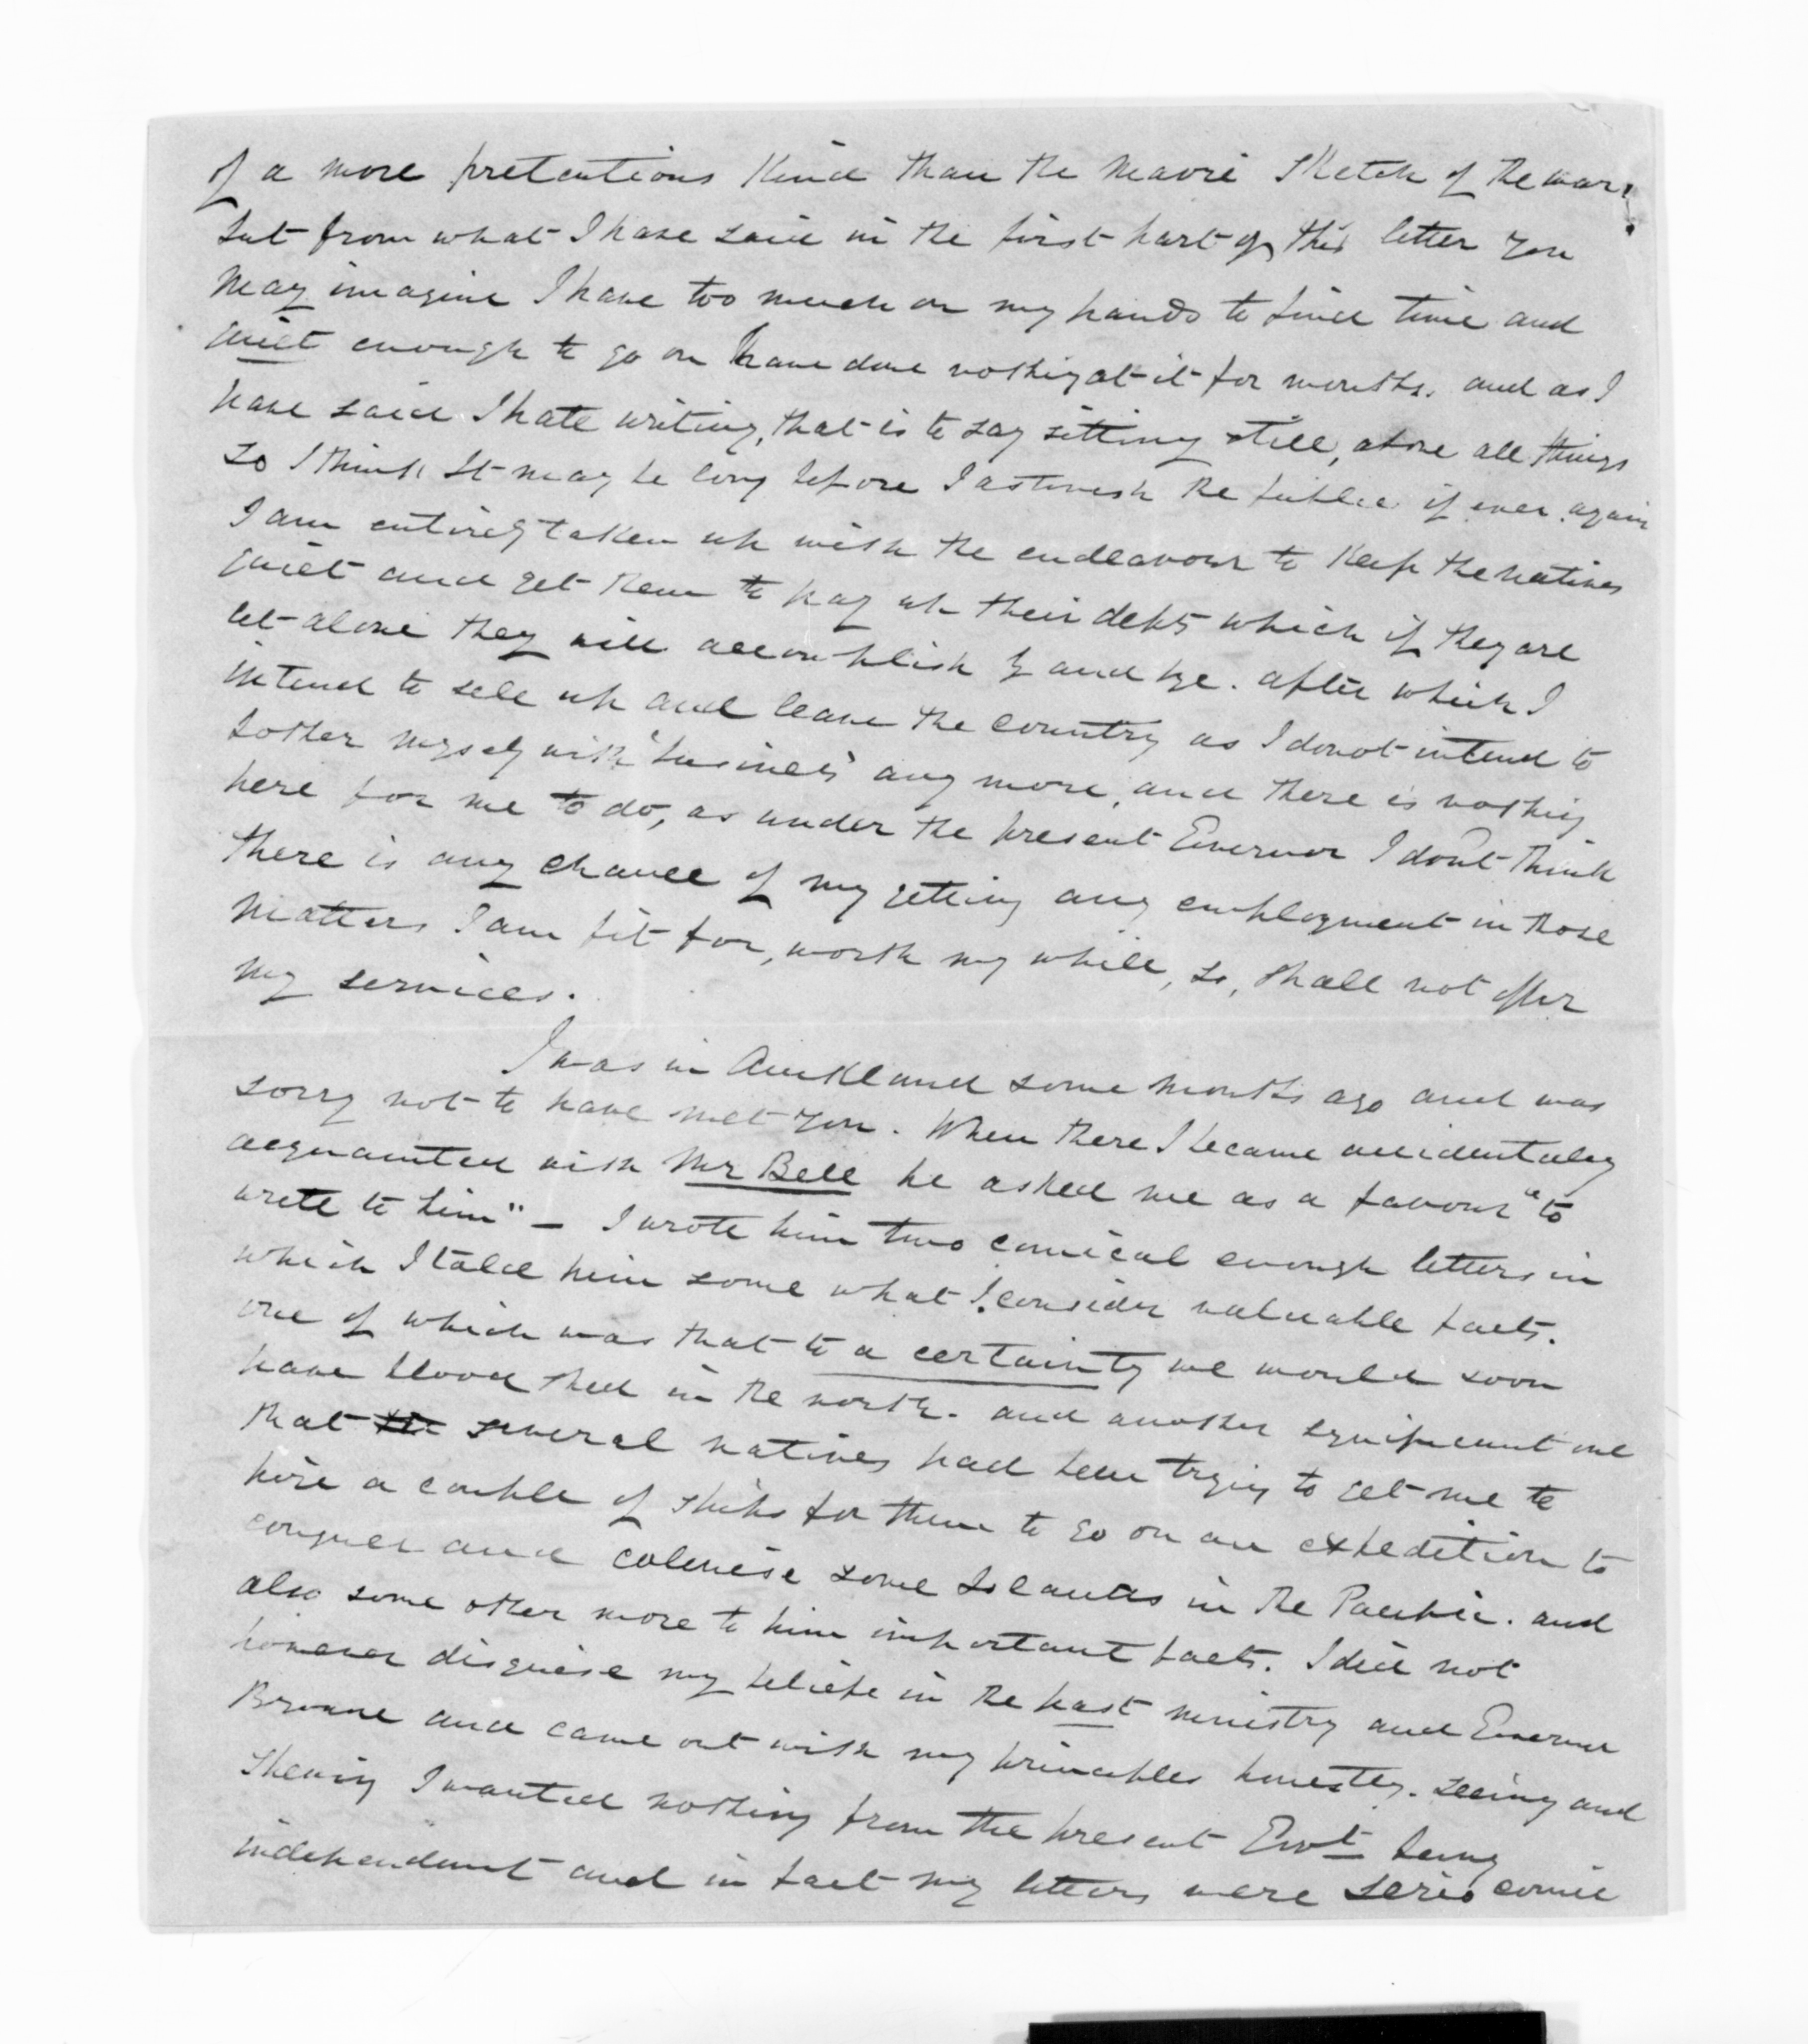 of a more pretentious kind than the Maori sketch of the war.
but from what I have said in the first part of this letter you
may imagine I have too much on my hands to find time and
quiet enough to go on have done nothing at it for months. and as I
have said I hate writing, that is to say sitting still, above all things
so I think It may be long before I astonish the public if ever again
I am entirely taken up with the endeavour to keep the natives
quiet and get them to pay up their debts which if they are
let alone they will accomplish by and bye. after which I
intend to sell up and leave the country as I do not intend to
bother myself with "business" any more, and there is nothing
here for me to do, as under the present Governor I dont think
there is any chance of my getting any employment in those
matters I am fit for, worth my while, so, shall not offer
my services.
I was in Auckland some months ago and was
sorry not to have met you. When there I became accidentaley
acquainted with Mr Bell he asked me as a favour "to
write to him" – I wrote him two comical enough letters in
which I told him some what I consider valuable facts.
one of which was that to a certainty we would soon
have blood shed in the north. and another significant one
that several natives had been trying to get me to
hire a couple of ships for them to go on an expedition to
conquer and colonise some Islands in the Pacific. and
also some other more to him important facts. I did not
however disguise my beliefe in the past ministry and Governor
Browne and came out with my principles honestly. seeing and
shewing I wanted nothing from the present Govt being
independant and in fact my letters were serio comic